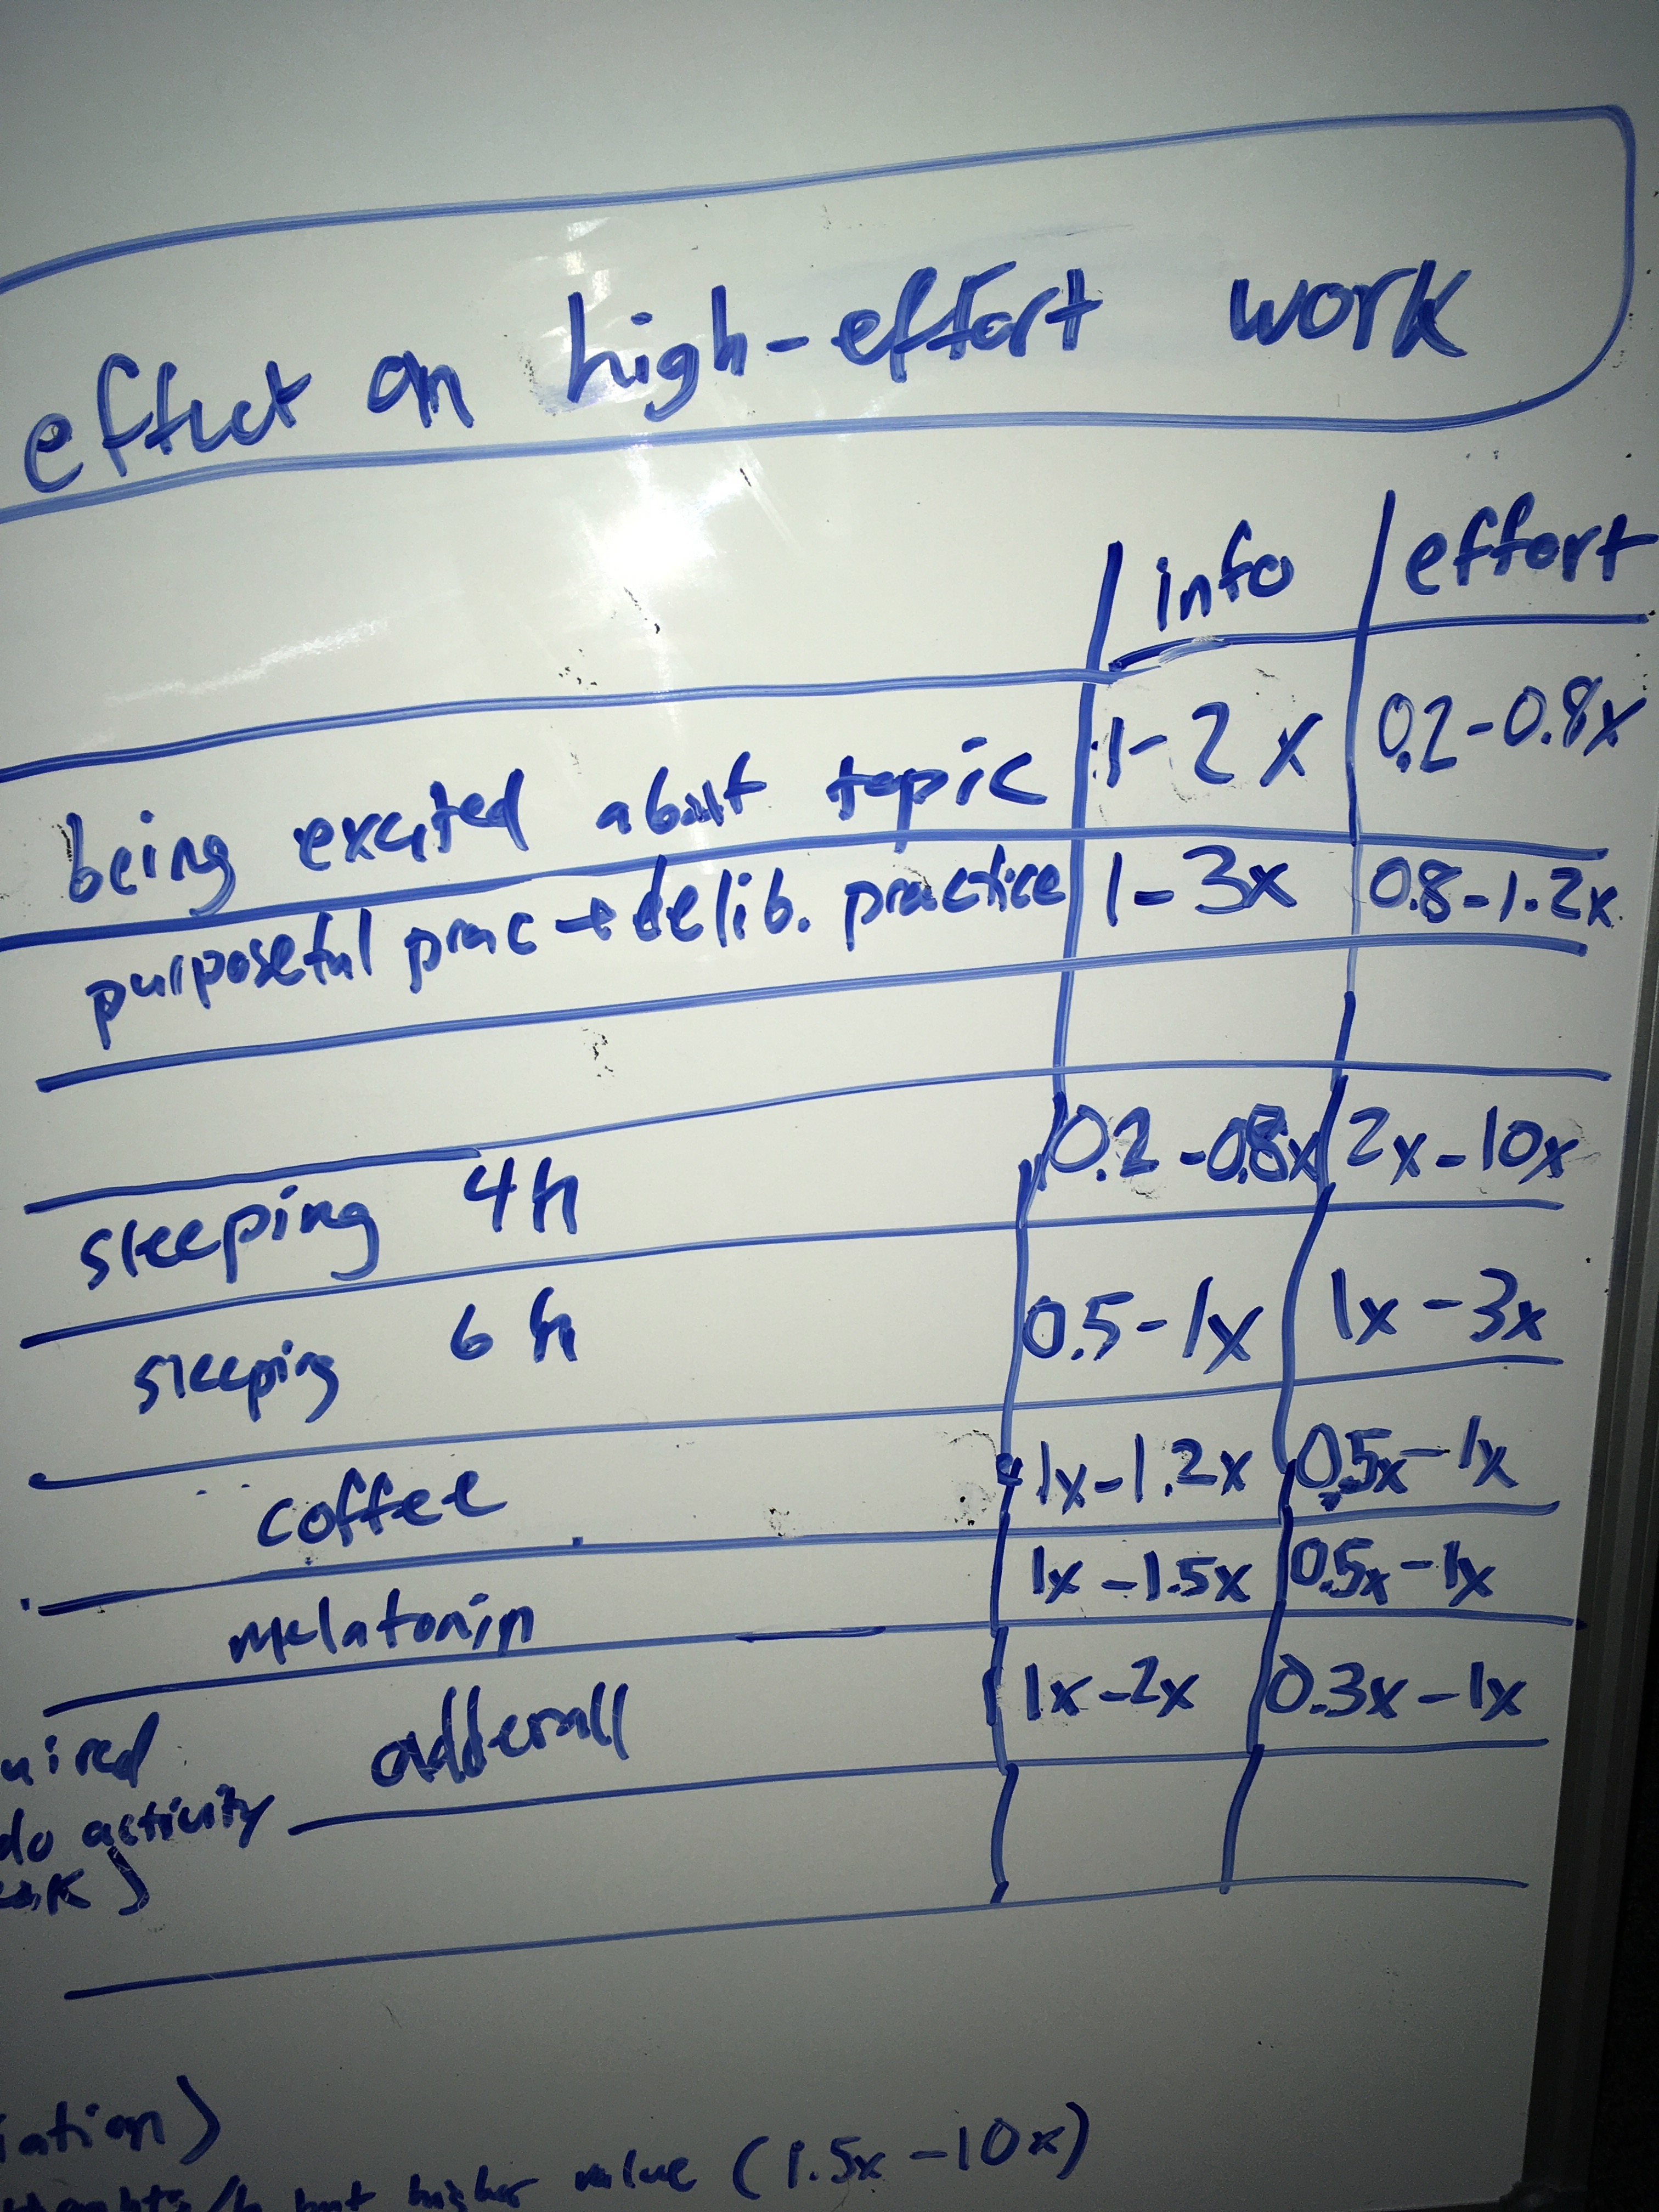 effect on high-effort work
info effort
being excited about topic 1-2x 0.2-0.8x
purposeful prac → delib. practice 1-3x 0.8-1.2x
sleeping 4h 0.2-0.8x 2x-10x
sleeping 6h 0.5-1x 1x-3x
coffee 1x-1.2x 0.5x-1x
melatonin 1x-1.5x 0.5x-1x
adderall 1x-2x 0.3x-1x
uired
do activity
iation)
but higher value (1.5x-10x)